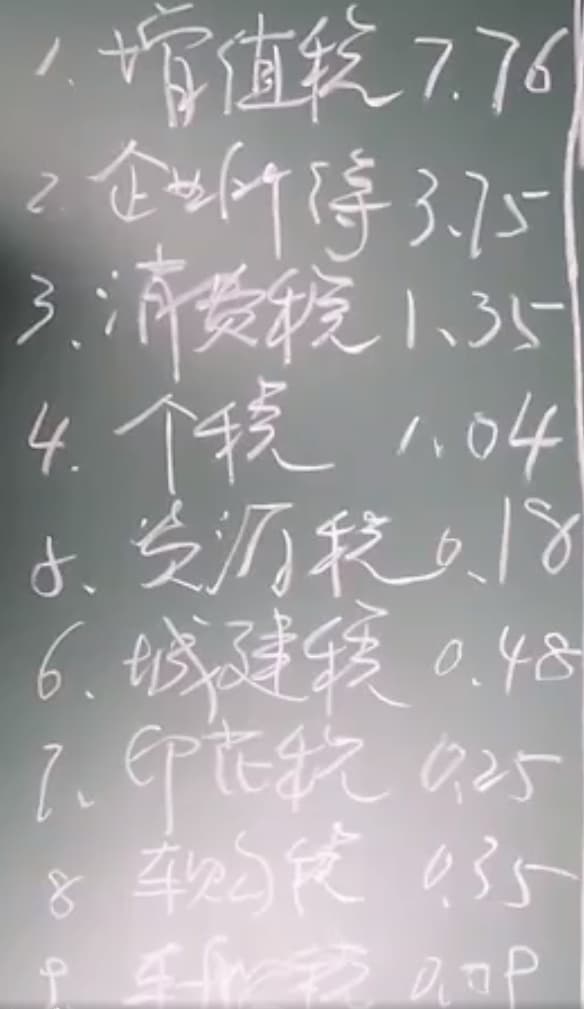 1. 增值税 7.76
2. 企业所得 3.75
3. 消费税 1.35
4. 个税 1.04
5. 资源税 0.18
6. 城建税 0.48
7. 印花税 0.25
8 车购税 0.35
9. 车船税 0.09